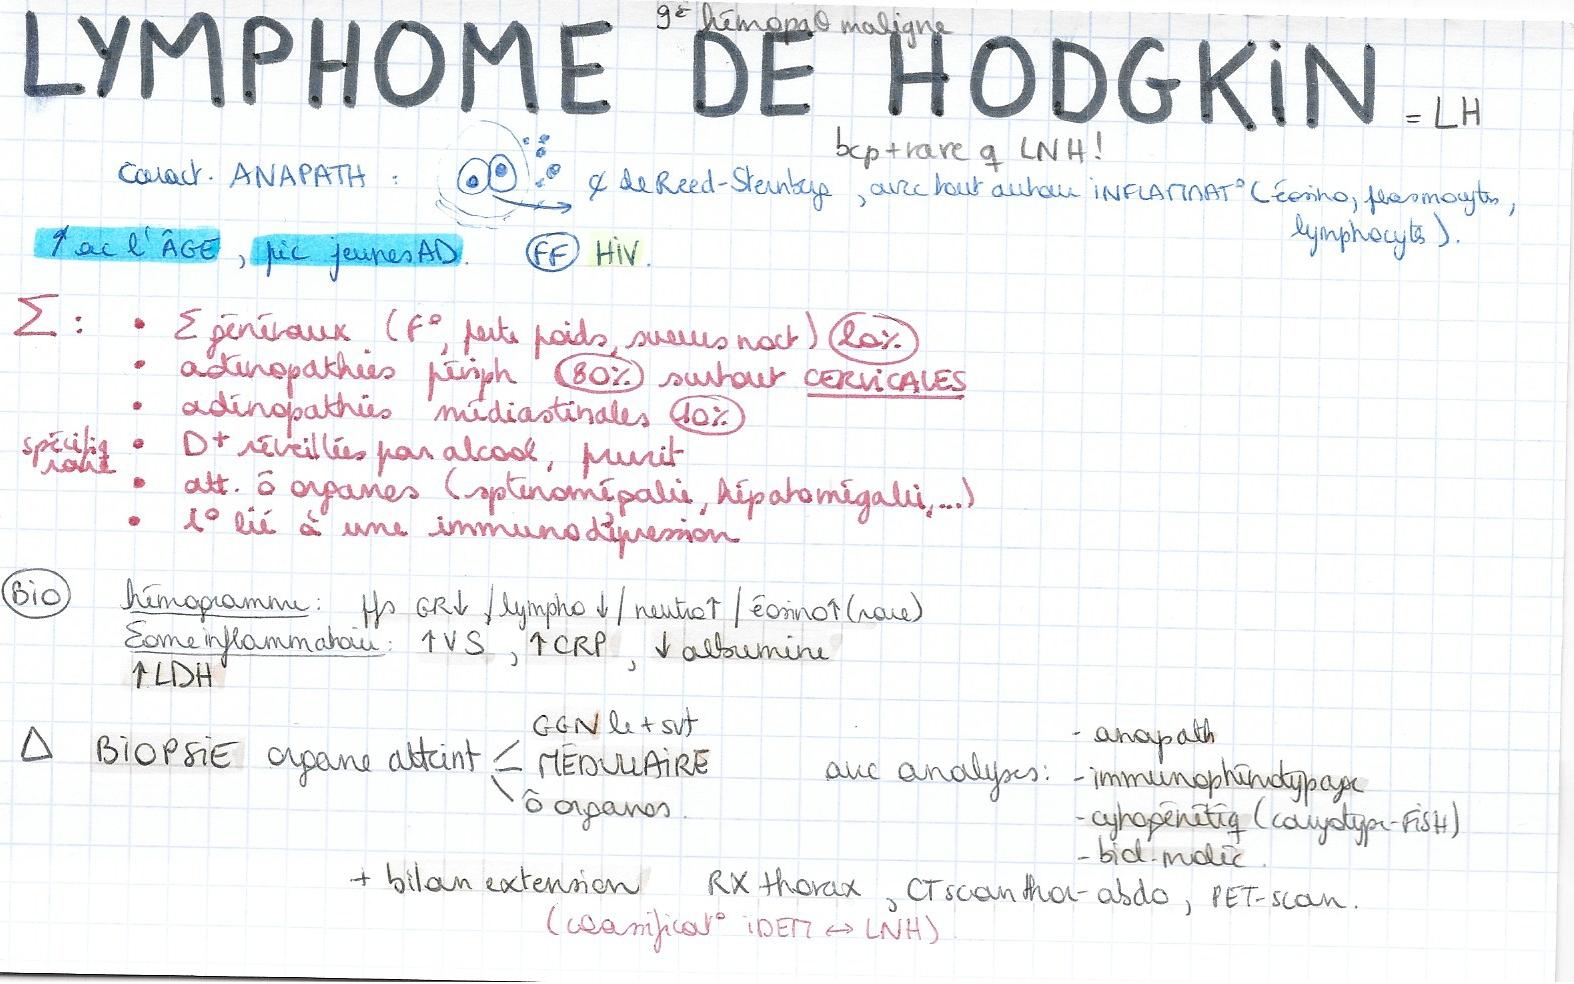 9e hémopø maligne
LYMPHOME DE HODGKiN = LH
bcp + rare q LNH!
Caract. ANAPATH : ¢ de Reed-Sternberg, avec tout autour iNFLAMMAT° (éosino, plasmocytes,
lymphocytes).
↑ ac l'ÂGE, pic jeunes AD. FF HiV.
Σ : • Σ généraux (F°, perte poids, sueurs noct) 20%
• adénopathies périph 80% surtout CERVICALES
• adénopathies médiastinales 10%
spécifiq rare • D+ réveillées par alcool, prurit
• att. ô organes (splénomégalie, hépatomégalie,...)
• i° lié à une immunodépression
Bio hémogramme: GR↓ / lympho ↓ / neutro↑ / éosino↑ (rare)
Σome inflammatoire: ↑VS, ↑CRP, ↓ albumine
↑LDH
Δ BiOPSiE organe atteint < GGN le + svt
MÉDULLAiRE
ô organes.
avec analyses: - anapath
- immunophénotypage
- cytogénétiq (caryotype-FiSH)
- biol. moléc.
+ bilan extension RX thorax, CT scan thor-abdo, PET-scan.
(classificat° iDEM ↔ LNH)